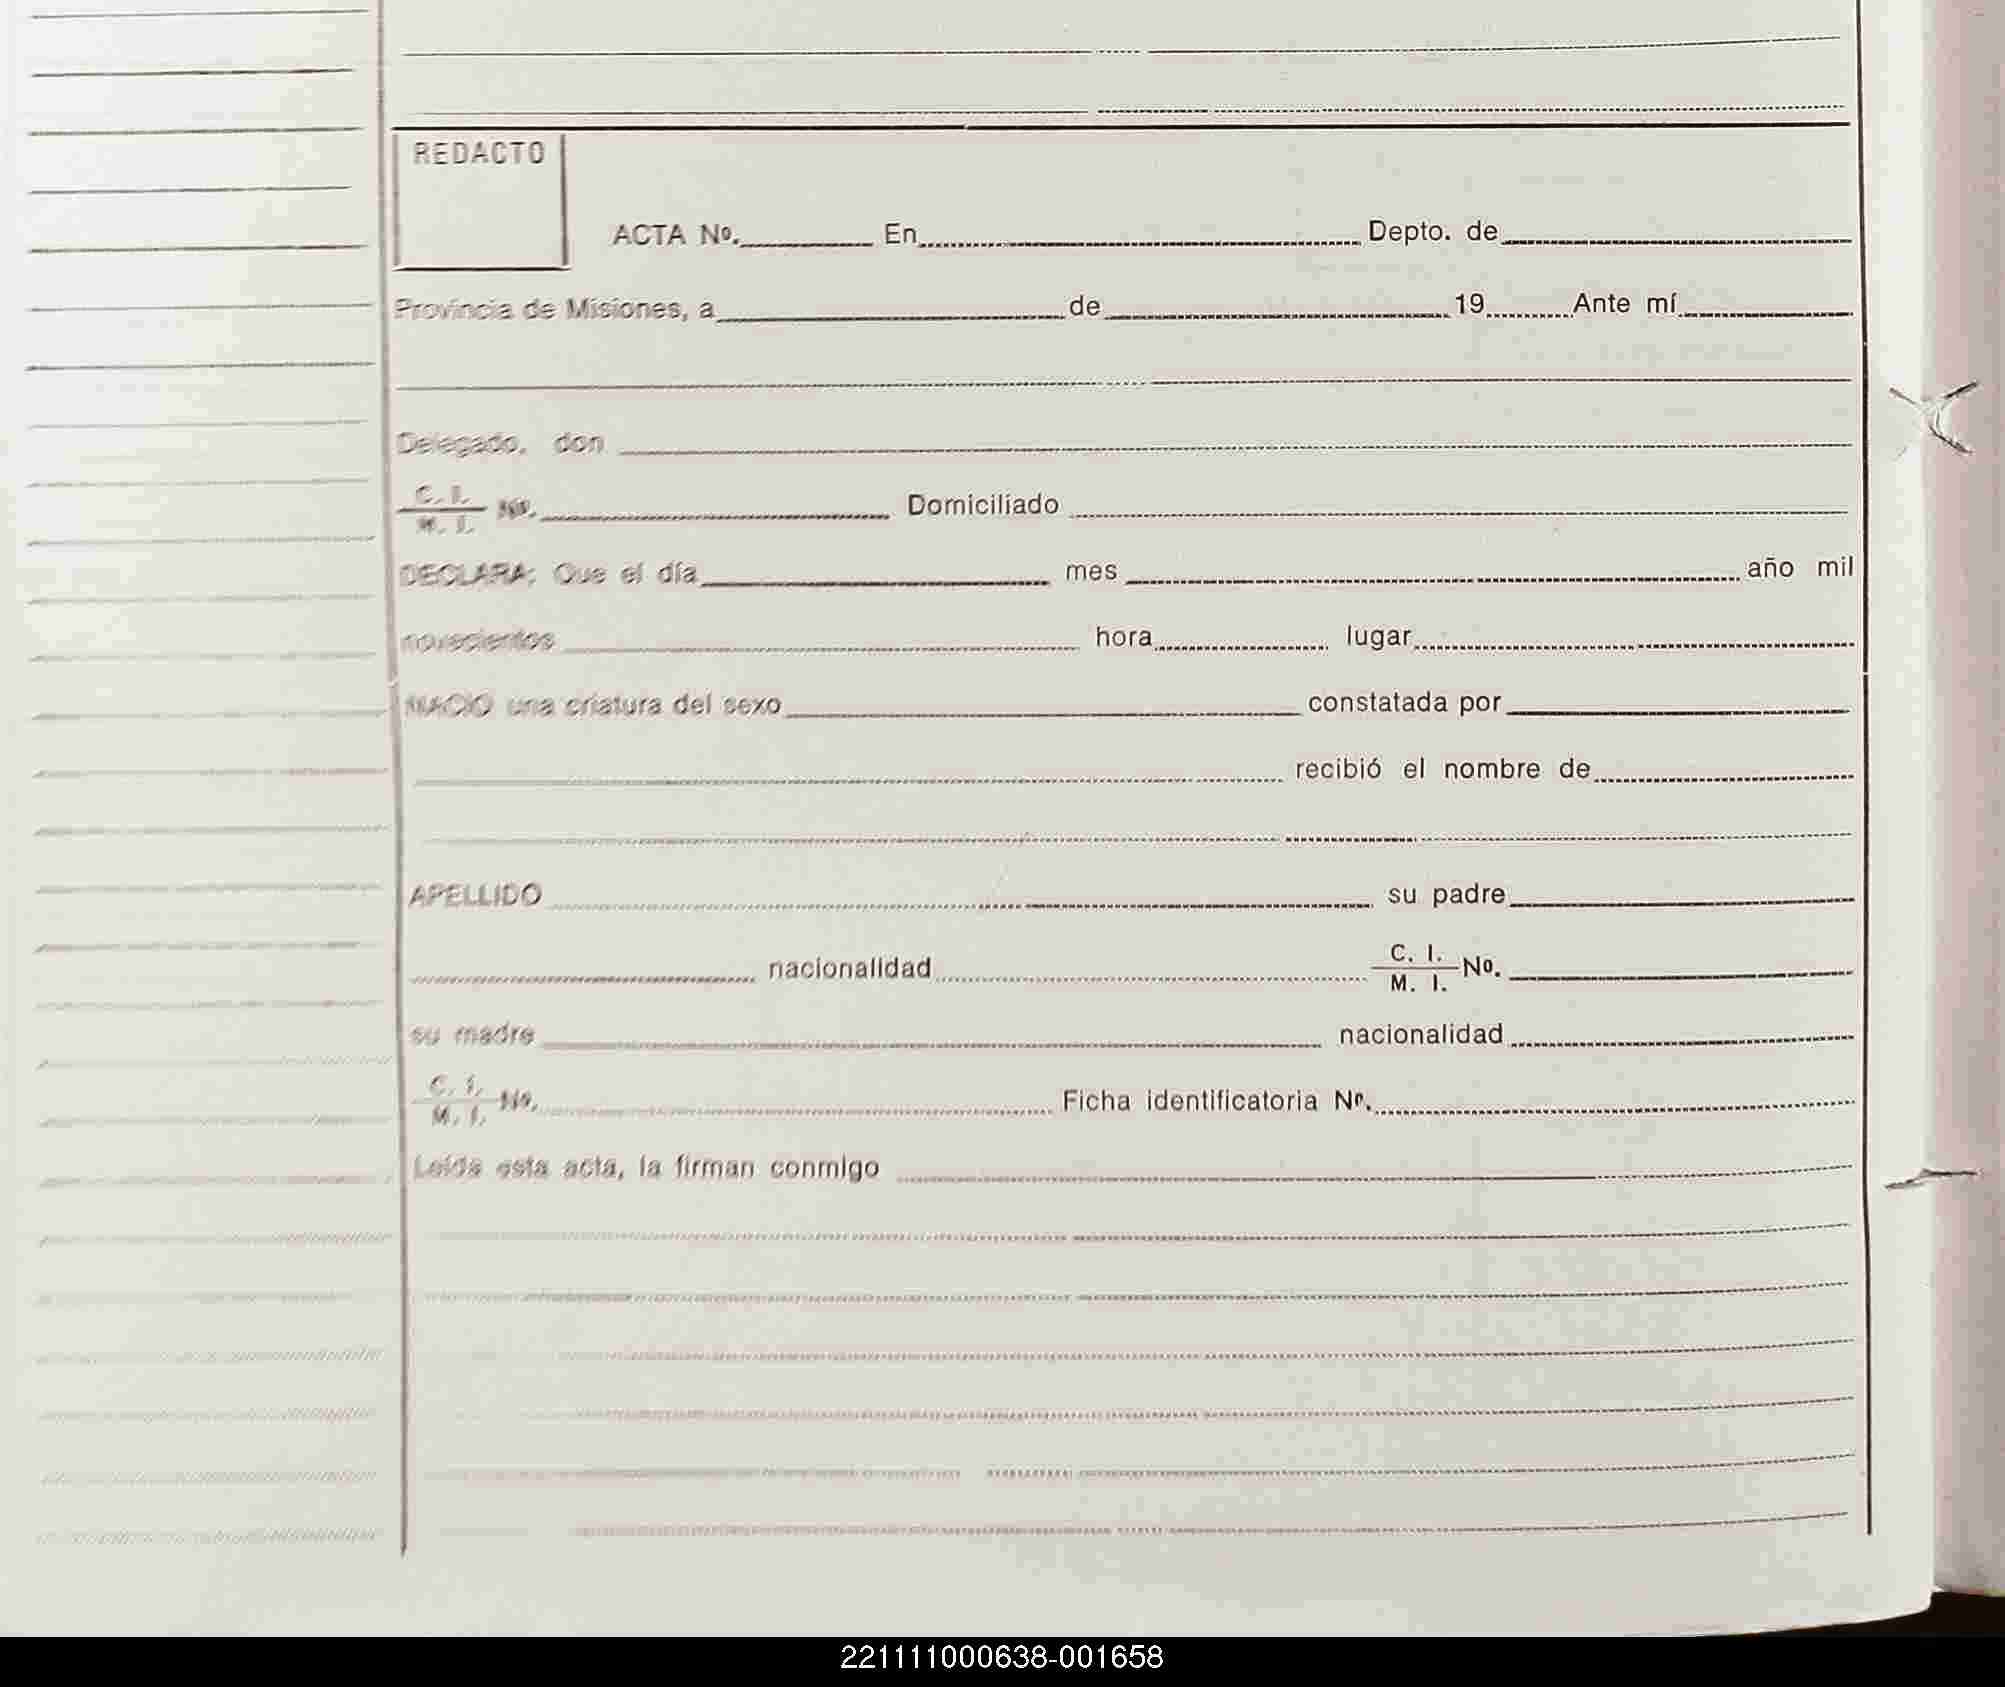 REDACTO
ACTA Nº. En Depto. de
Provincia de Misiones, a de 19 Ante mí
Delegado, don
C. I.
M. I. Nº. Domiciliado
DECLARA: Que el día mes año mil
novecientos hora lugar
NACIO una criatura del sexo constatada por
recibió el nombre de
APELLIDO su padre
nacionalidad C. I.
M. I. Nº.
su madre nacionalidad
C. I.
M. I. Nº. Ficha identificatoria Nº.
Leída esta acta, la firman conmigo
221111000638-001658